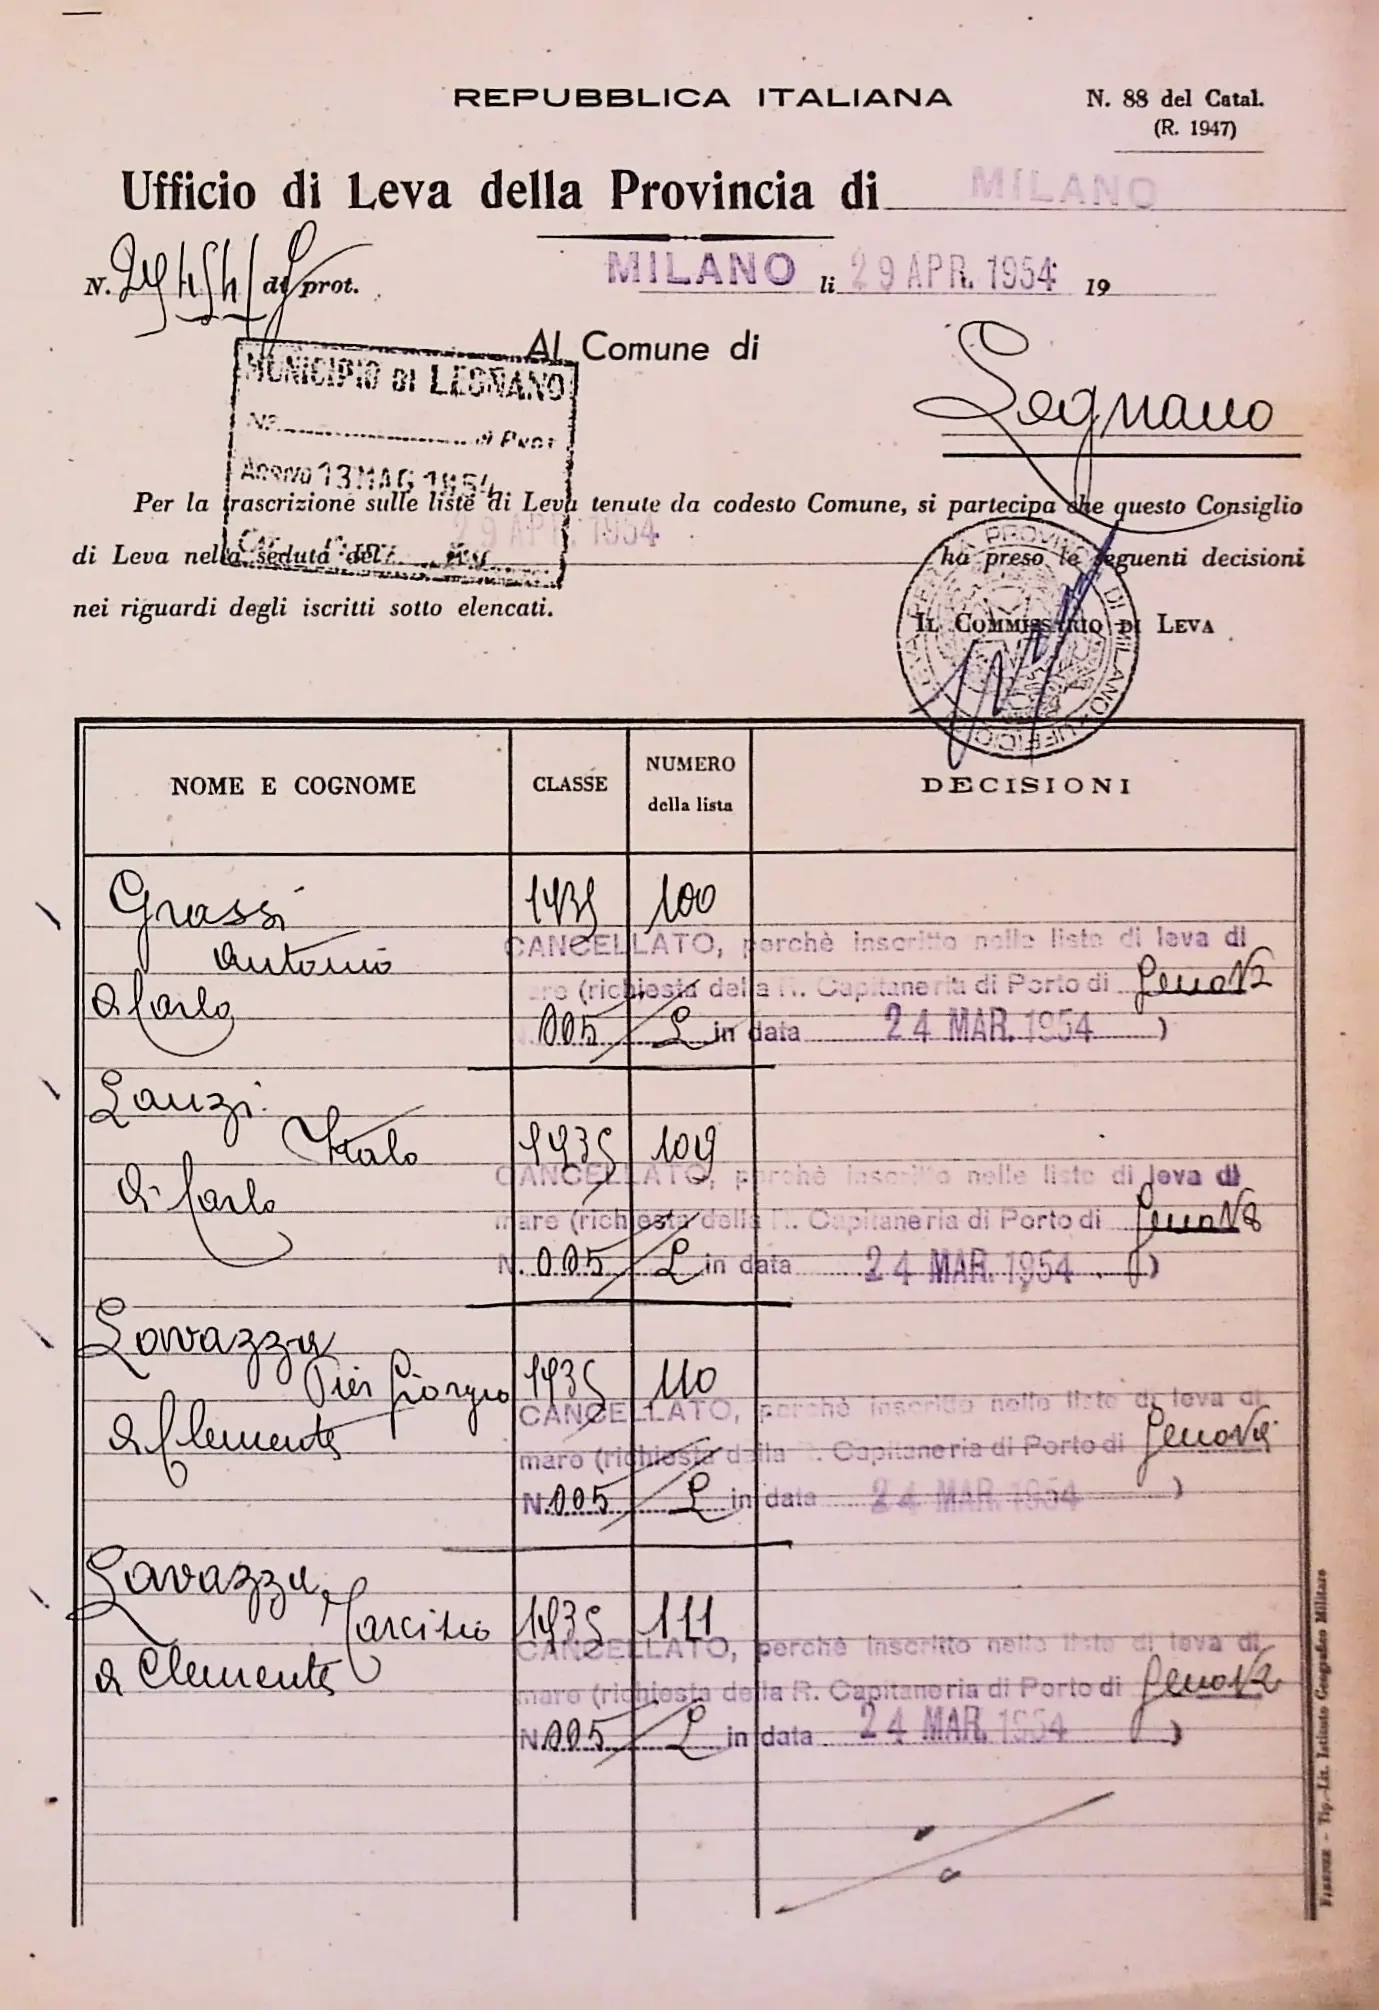 REPUBBLICA ITALIANA
N. 88 del Catal.
(R. 1947)
Ufficio di Leva della Provincia di MILANO
N. di prot.
MILANO li 29 APR. 1954 19
Al Comune di
Legnano
MUNICIPIO DI LEGNANO
N° di Prot
Arrivo 13 MAG 1954
Per la trascrizione sulle liste di Leva tenute da codesto Comune, si partecipa che questo Consiglio
di Leva nella seduta del 29 APR. 1954 ha preso le seguenti decisioni
nei riguardi degli iscritti sotto elencati.
IL COMMISSARIO DI LEVA
NOME E COGNOME CLASSE NUMERO della lista DECISIONI
Grassi 1935 100
Antonio CANCELLATO, perchè inscritto nelle liste di leva di
di Carlo mare (richiesta della R. Capitaneria di Porto di Genova
N. 005/L in data 24 MAR. 1954 )
Lanzi
Italo 1935 109
CANCELLATO, perchè inscritto nelle liste di leva di
di Carlo mare (richiesta della R. Capitaneria di Porto di Genova
N. 005/L in data 24 MAR. 1954 )
Lavazza
Pier Giorgio 1935 110
CANCELLATO, perchè inscritto nelle liste di leva di
di Clemente mare (richiesta della R. Capitaneria di Porto di Genova
N. 005/L in data 24 MAR. 1954 )
Lavazza
Tarcisio 1935 111
CANCELLATO, perchè inscritto nelle liste di leva di
di Clemente mare (richiesta della R. Capitaneria di Porto di Genova
N. 005/L in data 24 MAR. 1954 )
FIRENZE - Tip.-Lit. Istituto Geografico Militare